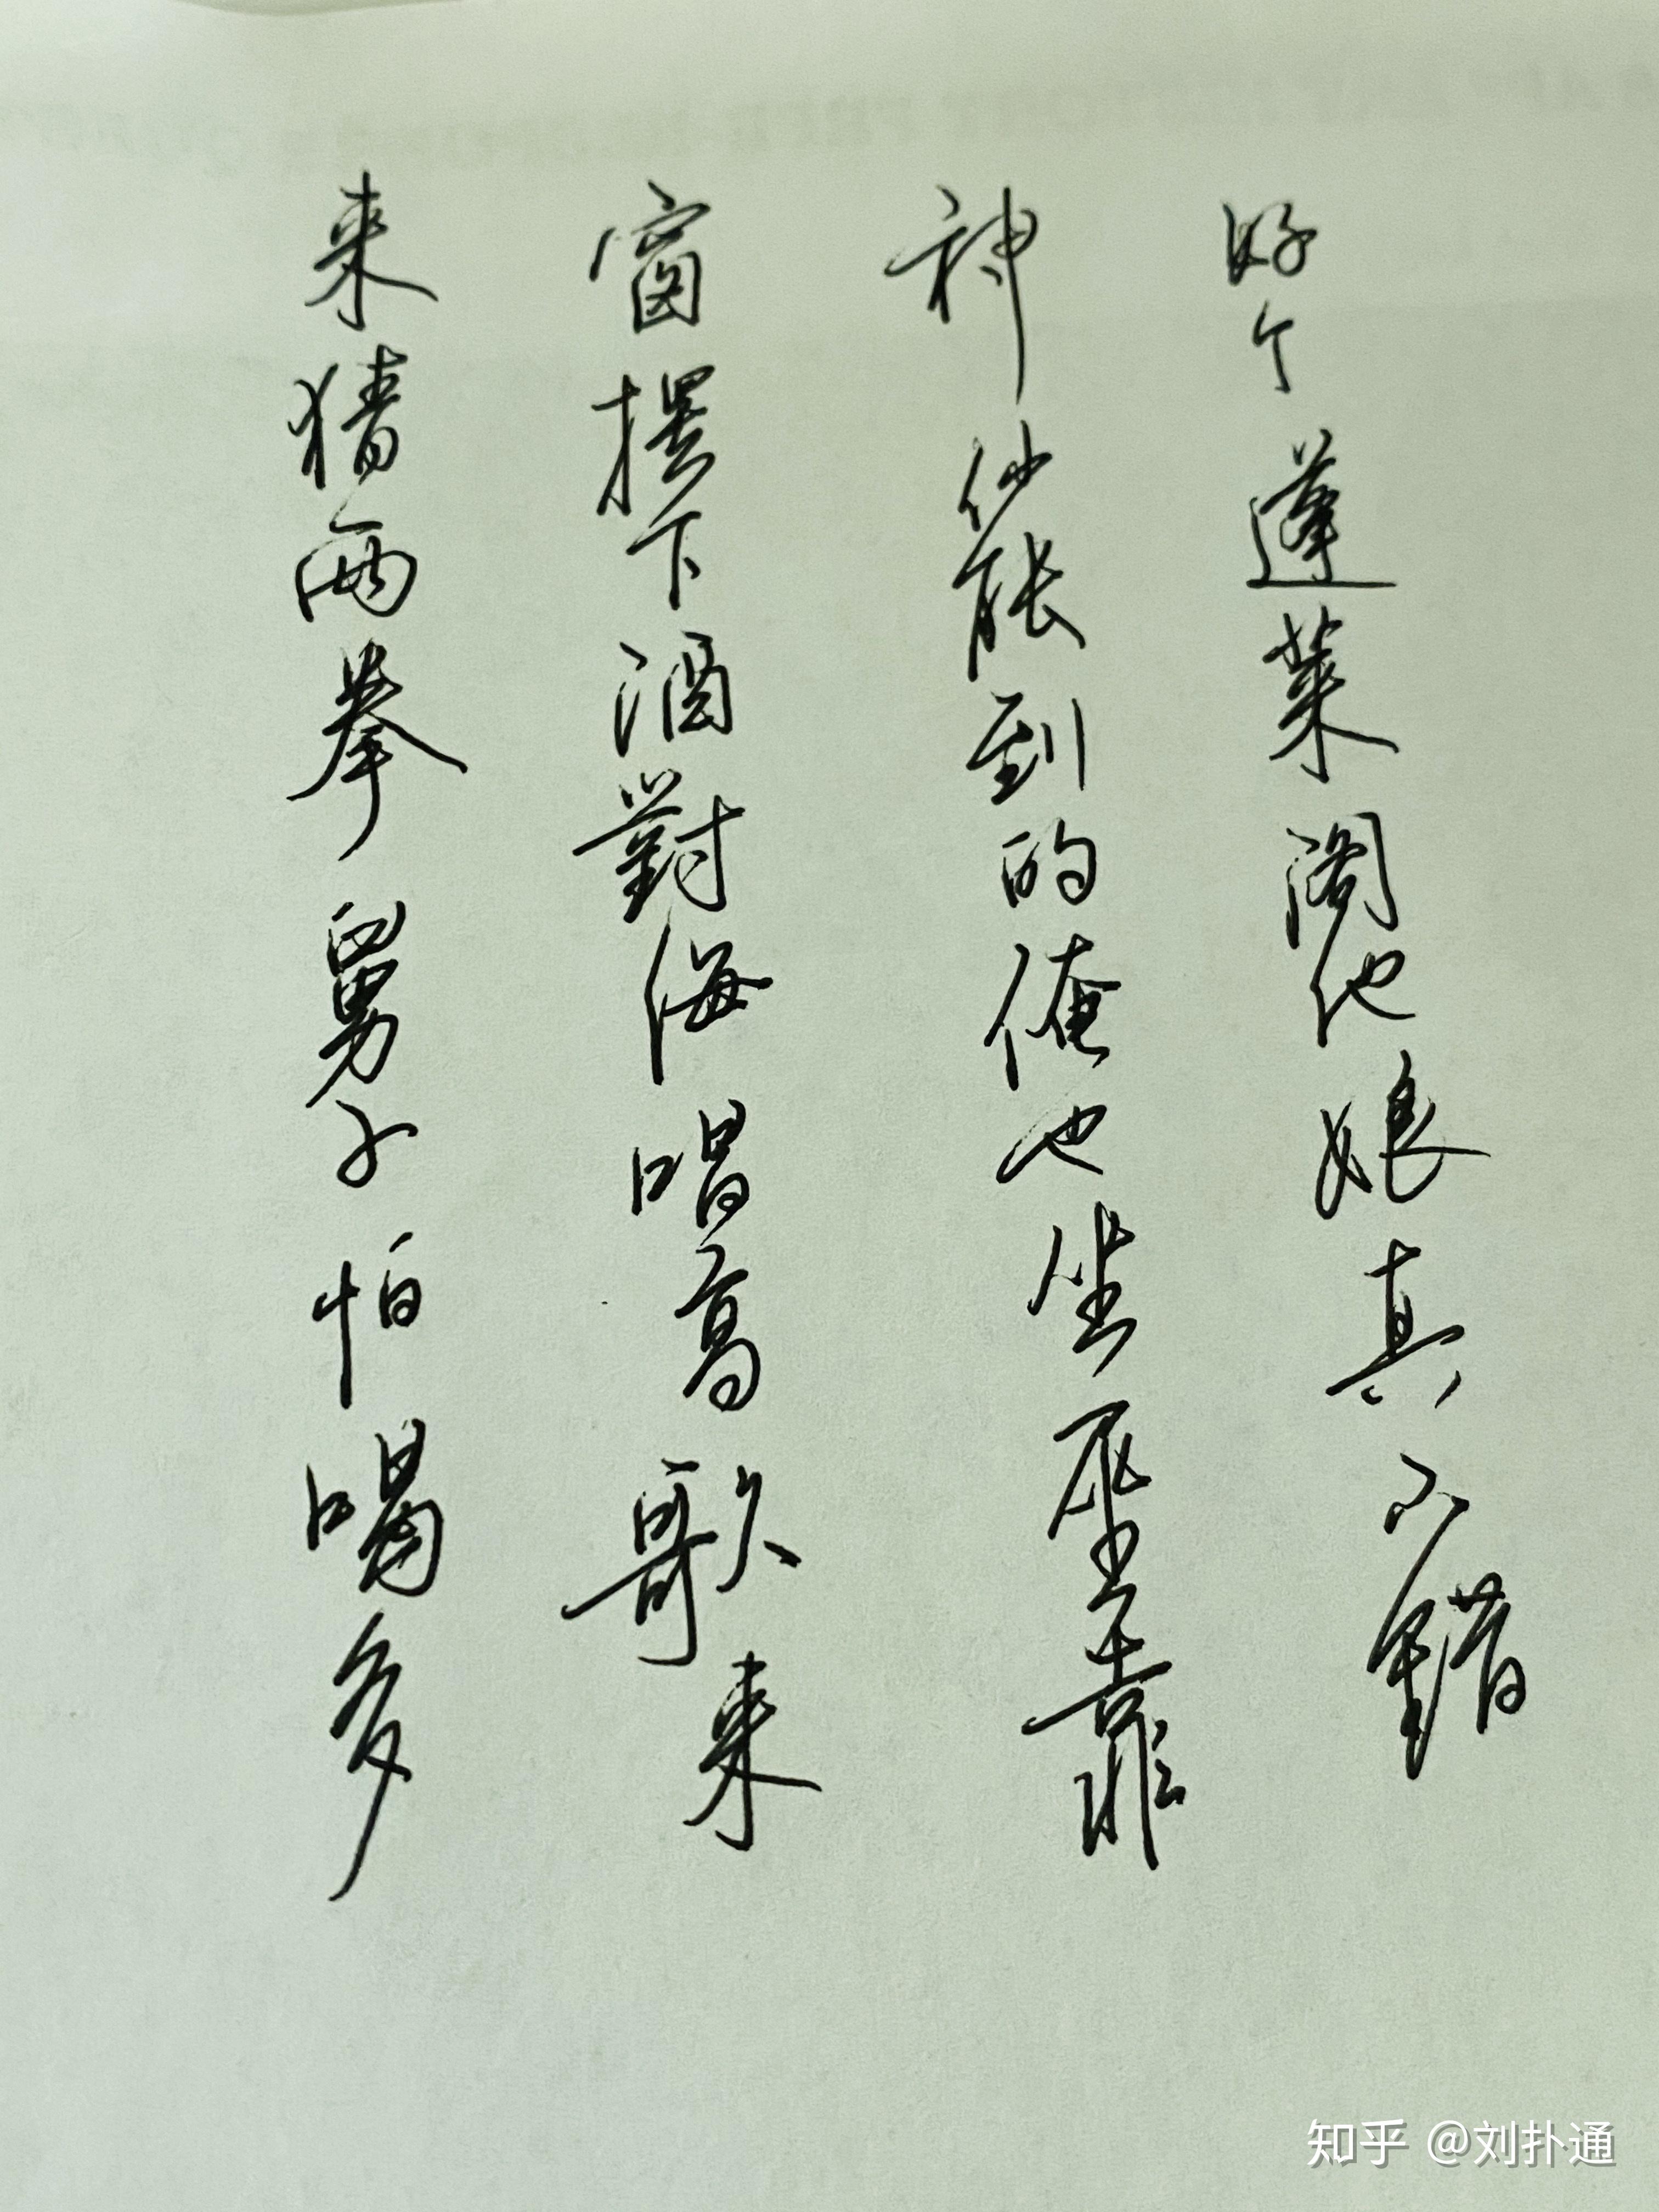 好个蓬莱阁他娘真不錯
神仙能到的俺也坐坐靠
窗摆下酒對海唱高歌来
来猜两拳舅子怕喝多
知乎 @刘扑通